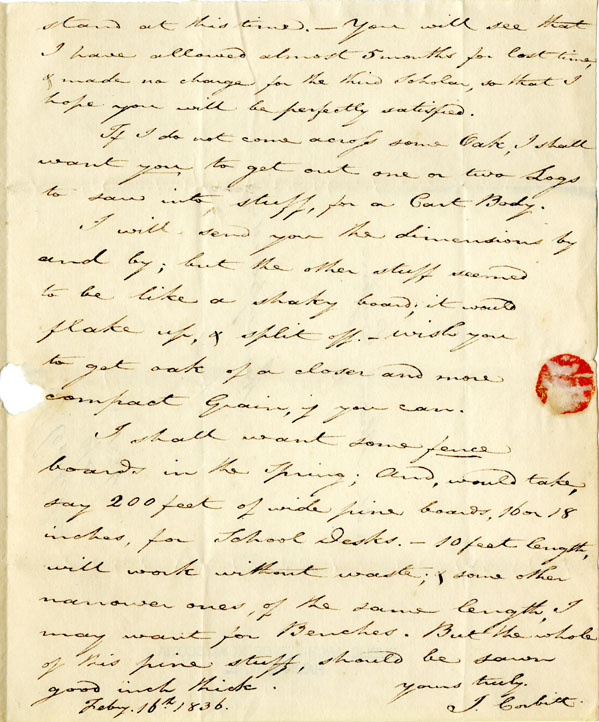 stand at this time. – You will see that
I have allowed almost 5 months for lost time,
& made no charge for the third Scholar, so that I
hope you will be perfectly satisfied.
If I do not come across some Oak, I shall
want you, to get out one or two Logs
to saw into stuff, for a Cart Body.
I will send you the dimensions by
and by; but the other stuff seemed
to be like a shaky board; it would
flake up, & split off. – wish you
to get oak of a closer and more
compact Grain, if you can.
I shall want some fence
boards in the Spring; And, would take,
say 200 feet of wide pine boards, 16 or 18
inches, for School Desks. – 10 feet length,
will work without waste; & some other
narrower ones, of the same length, I
may want for Benches. But the whole
of this pine stuff should be sawn
good inch thick. yours truly.
Feby. 16th 1836. J. Corbitt